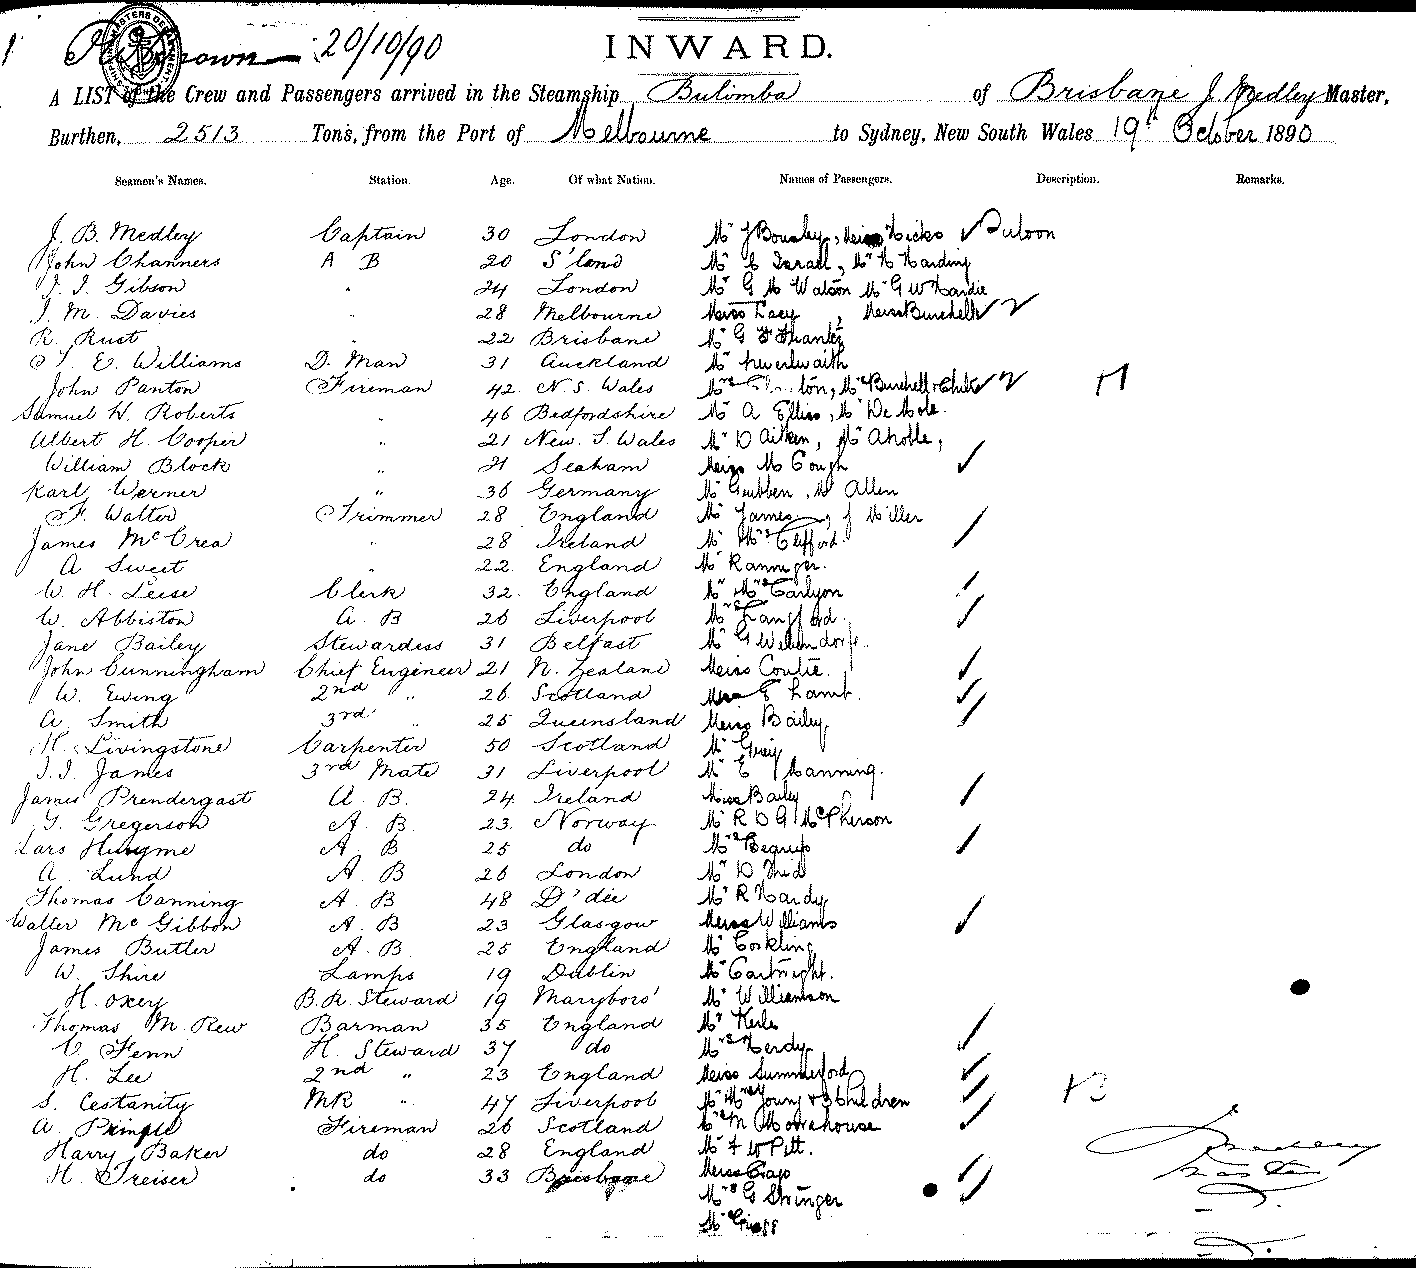 20/10/90
INWARD.
A LIST of the Crew and Passengers arrived in the Steamship Bulimba of Brisbane J. Medley Master,
Burthen, 2513 Tons, from the Port of Melbourne to Sydney, New South Wales 19th October 1890
Seamen's Names. Station. Age. Of what Nation. Names of Passengers. Description. Remarks.
J. B. Medley Captain 30 London Mr J Bousley, Miss Hicks Saloon
John Channers A B 20 S'land Mr C Israel, Mr H Harding
J. J. Gibson " 24 London Mr G M Watson Mr G W Hardie
J. M. Davies " 28 Melbourne Miss Lacy, Miss Burchell
R. Rust " 22 Brisbane Mr G F
J. E. Williams D. Man 31 Auckland Mr
John Panton Fireman 42 N. S. Wales Mrs Burchell & Child
Samuel W. Roberts " 46 Bedfordshire Mr A Ellis, Mr De Mole.
Albert H. Cooper " 21 New. S. Wales Mr D Aitken, Mr A Noble,
William Block " 21 Seaham Miss M Gough
Karl Werner " 36 Germany Mr Gubben, Mr Allen
F. Walter Trimmer 28 England Mr James J Miller
James McCrea " 28 Ireland Mr Mrs Clifford
A Sweet " 22 England Mr Ranniger.
W. H. Leese Clerk 32 England Mr Mrs Carlyon
W. Abbiston A. B 26 Liverpool Mrs Langford.
Jane Bailey Stewardess 31 Belfast Mr G
John Cunningham Chief Engineer 21 N. Zealand Miss Coutie.
W. Ewing 2nd " 26 Scotland E Lamb.
A. Smith 3rd " 25 Queensland Miss Bailey
H. Livingstone Carpenter 50 Scotland Mr Greig
J. J. James 3rd Mate 31 Liverpool Mr E Manning.
James Prendergast A. B. 24 Ireland Miss Bailey
G. Gregerson A. B. 23 Norway Mr R D G McPherson
Lars A. B 25 do Mrs
A. Lund A. B 26 London Mr D
Thomas Canning A. B 48 D'dee Mr R Hardy
Walter McGibbon A. B 23 Glasgow Miss Williams
James Butler A. B. 25 England Mr Cockling
W. Shire Lamps 19 Dublin Mr Cartwright.
H. Oxey B. R. Steward 19 Maryboro' Mr Williamson
Thomas M. Rew Barman 35 England Mr Kerle
C. Fenn H. Steward 37 do Mrs Herdy
H. Lee 2nd " 23 England Miss Summerford
S. Cestanity MR " 47 Liverpool Mr Mrs Young & 3 Children
A. Pringle Fireman 26 Scotland M Moorehouse
Harry Baker do 28 England Mr F W Pitt.
H. Treiser do 33 Brisbane Miss
Mrs G Stringer
Mr
J Medley
Master